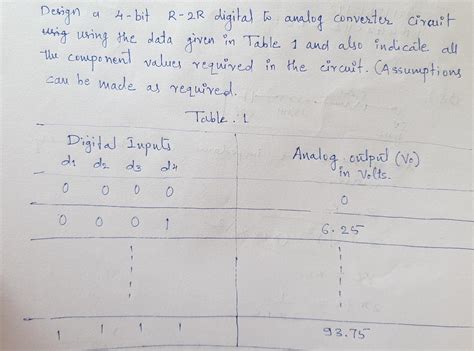 Design a 4-bit R-2R digital to analog converter circuit
using the data given in Table 1 and also indicate all
the component values required in the circuit. (Assumptions
can be made as required.
Table. 1
Digital Inputs
Analog output (Vo)
in Volts.
d1 d2 d3 d4
0 0 0 0
0
0 0 0 1
6.25
1 1 1 1
93.75